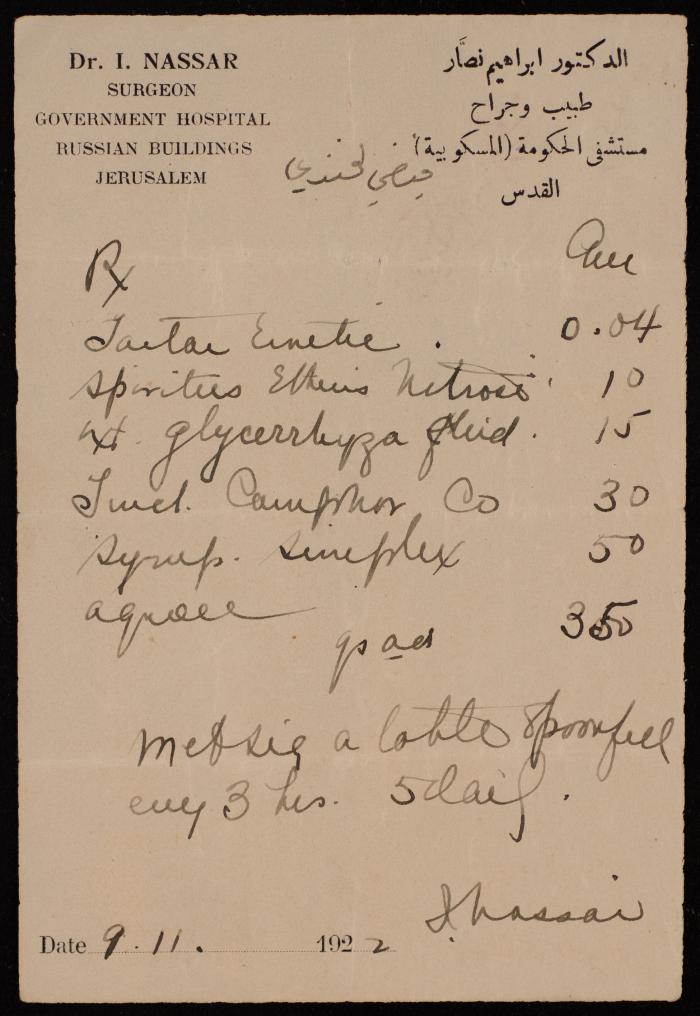 Dr. I. NASSAR
SURGEON
GOVERNMENT HOSPITAL
RUSSIAN BUILDINGS
JERUSALEM
الدكتور ابراهيم نصَّار
طبيب وجراح
مستشفى الحكومة (المسكوبية)
القدس
Rx
Tartar Emetic . 0.04
Spiritus Etheris Nitrosi 10
Ext. glycerrhyza fluid. 15
Tinct. Camphor Co 30
Syrup. simplex 50
aquae
ad 350
M et sig a table spoonful
evey 3 hrs. 5 daily.
I. Nassar
Date 9.11. 1922